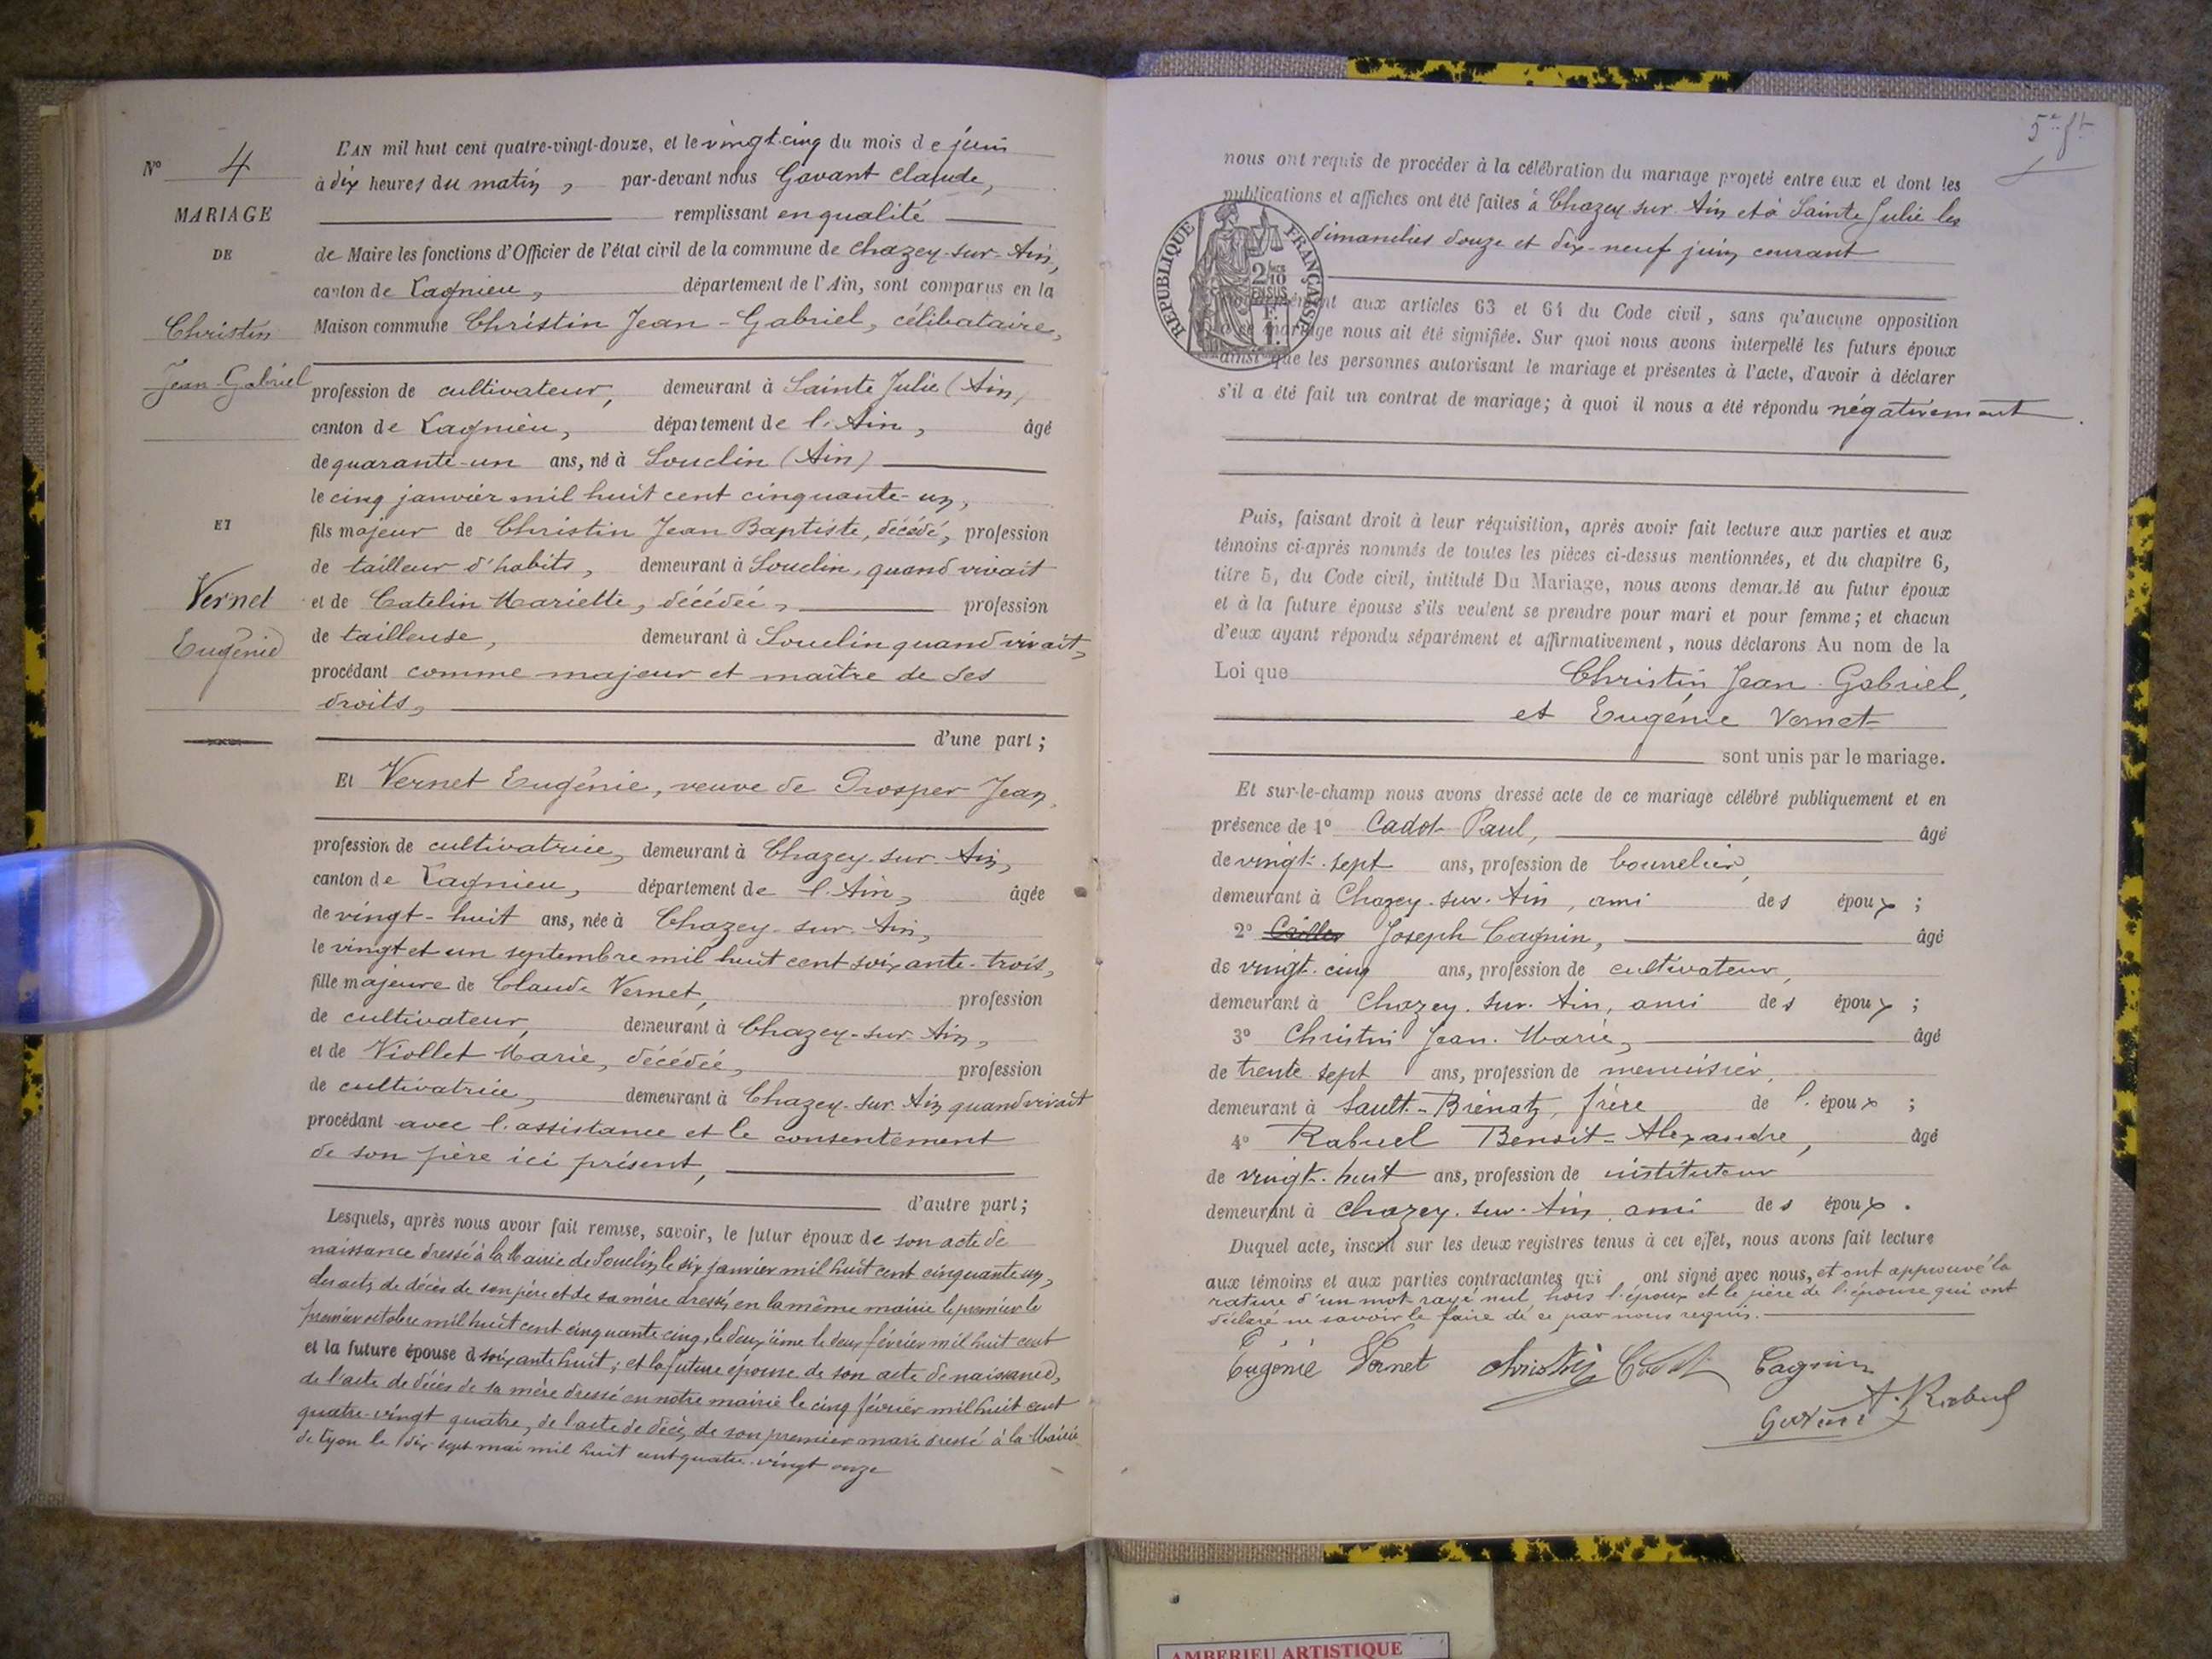 N° 4
MARIAGE
DE
Christin
Jean-Gabriel
ET
Vernet
Eugénie
L'AN mil huit cent quatre-vingt-douze, et le vingt-cinq du mois de juin
à dix heures du matin, par-devant nous Gavant Claude,
remplissant en qualité
de Maire les fonctions d'Officier de l'état civil de la commune de Chazey-sur-Ain,
canton de Lagnieu, département de l'Ain, sont comparus en la
Maison commune Christin Jean-Gabriel, célibataire,
profession de cultivateur, demeurant à Sainte Julie (Ain)
canton de Lagnieu, département de l'Ain, âgé
de quarante-un ans, né à Souclin (Ain)
le cinq janvier mil huit cent cinquante-un,
fils majeur de Christin Jean Baptiste, décédé, profession
de tailleur d'habits, demeurant à Souclin, quand vivait
et de Catelin Mariette, décédée, profession
de tailleuse, demeurant à Souclin quand vivait,
procédant comme majeur et maître de ses
droits,
d'une part ;
Et Vernet Eugénie, veuve de Prosper Jean,
profession de cultivatrice, demeurant à Chazey-sur-Ain,
canton de Lagnieu, département de l'Ain, âgée
de vingt-huit ans, née à Chazey-sur-Ain,
le vingt et un septembre mil huit cent soixante-trois,
fille majeure de Claude Vernet, profession
de cultivateur, demeurant à Chazey-sur-Ain,
et de Viollet Marie, décédée, profession
de cultivatrice, demeurant à Chazey-sur-Ain quand vivait
procédant avec l'assistance et le consentement
de son père ici présent,
d'autre part ;
Lesquels, après nous avoir fait remise, savoir, le futur époux de son acte de
naissance dressé à la Mairie de Souclin le six janvier mil huit cent cinquante un,
des actes de décès de son père et de sa mère dressés en la même mairie le premier le
premier octobre mil huit cent cinquante cinq, le deuxième le deux février mil huit cent
et la future épouse d soixante huit ; et la future épouse de son acte de naissance,
de l'acte de décès de sa mère dressé en notre mairie le cinq février mil huit cent
quatre-vingt quatre, de l'acte de décès de son premier mari dressé à la Mairie
de Lyon le dix-sept mai mil huit cent quatre-vingt onze
5e ft
nous ont requis de procéder à la célébration du mariage projeté entre eux et dont les
publications et affiches ont été faites à Chazey-sur-Ain et à Sainte Julie les
dimanches douze et dix-neuf juin courant
REPUBLIQUE FRANÇAISE
2/10 EN SUS
aux articles 63 et 64 du Code civil, sans qu'aucune opposition
mariage nous ait été signifiée. Sur quoi nous avons interpellé les futurs époux
ainsi que les personnes autorisant le mariage et présentes à l'acte, d'avoir à déclarer
s'il a été fait un contrat de mariage ; à quoi il nous a été répondu négativement
Puis, faisant droit à leur réquisition, après avoir fait lecture aux parties et aux
témoins ci-après nommés de toutes les pièces ci-dessus mentionnées, et du chapitre 6,
titre 5, du Code civil, intitulé Du Mariage, nous avons demandé au futur époux
et à la future épouse s'ils veulent se prendre pour mari et pour femme ; et chacun
d'eux ayant répondu séparément et affirmativement, nous déclarons Au nom de la
Loi que Christin Jean-Gabriel,
et Eugénie Vernet
sont unis par le mariage.
Et sur-le-champ nous avons dressé acte de ce mariage célébré publiquement et en
présence de 1° Cadot Paul, âgé
de vingt-sept ans, profession de bourrelier,
demeurant à Chazey-sur-Ain, ami des époux ;
2° Joseph Cagnin, âgé
de vingt-cinq ans, profession de cultivateur,
demeurant à Chazey-sur-Ain, ami des époux ;
3° Christin Jean-Marie, âgé
de trente sept ans, profession de menuisier,
demeurant à Sault-Brénaz, frère de l'époux ;
4° Rabuel Benoit-Alexandre, âgé
de vingt-huit ans, profession de instituteur
demeurant à Chazey-sur-Ain, ami des époux.
Duquel acte, inscrit sur les deux registres tenus à cet effet, nous avons fait lecture
aux témoins et aux parties contractantes qui ont signé avec nous, et ont approuvé la
rature d'un mot rayé nul, hors l'époux et le père de l'épouse qui ont
déclaré ne savoir le faire de ce par nous requis.
Eugénie Vernet Christin Cadot Cagnin
A. Rabuel
Gavant
AMBERIEU ARTISTIQUE